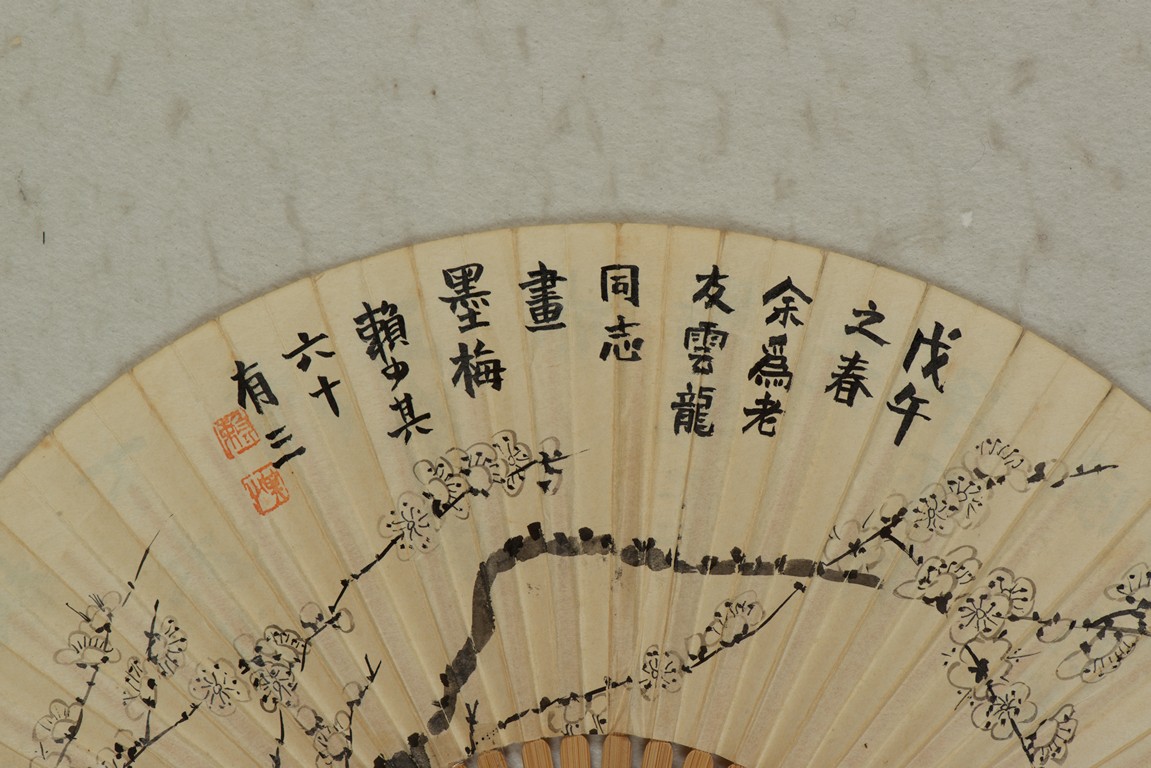 戊午
之春
余爲老
友雲龍
同志
畫
墨梅
賴少其
六十
有三